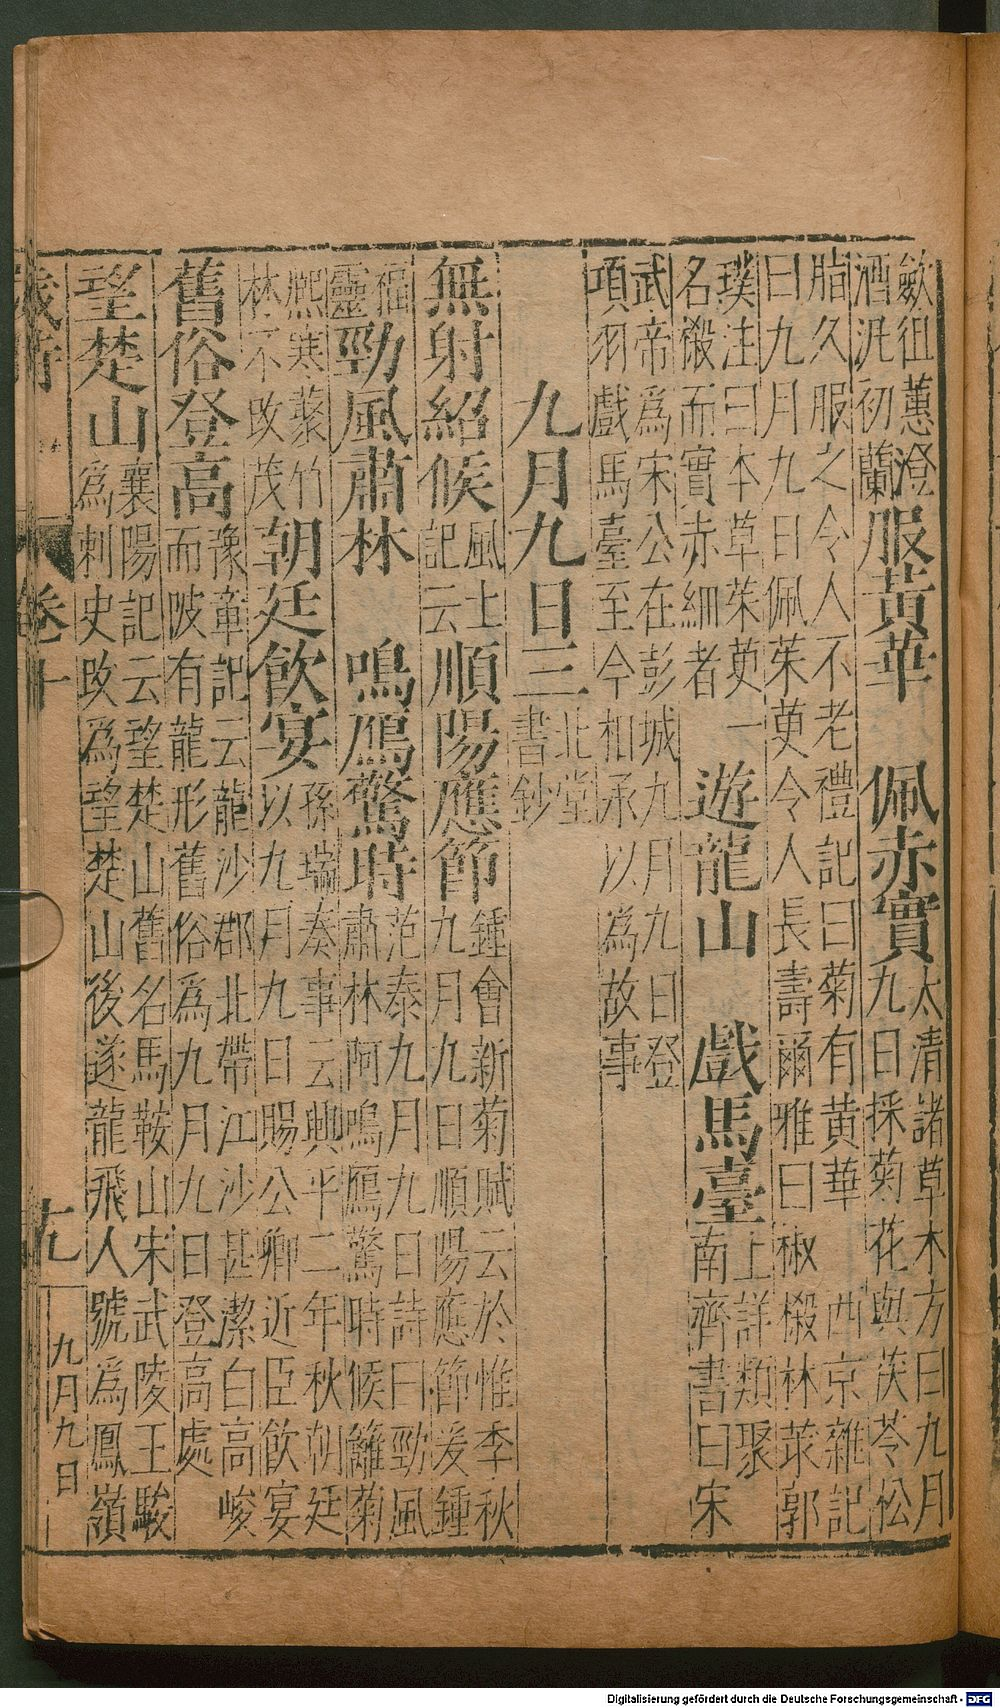 歛徂蕙澄
酒汎初蘭
服黃華　佩赤實
太清諸草木方曰九月
九日採菊花與茯苓松
脂久服之令人不老禮記曰菊有黃華　西京雜記
曰九月九日佩茱萸令人長壽爾雅曰椒樧林菉郭
璞注曰本草茱萸一
名樧而實赤細者
遊龍山　戲馬臺
上詳類聚
南齊書曰宋
武帝爲宋公在彭城九月九日登
項羽戲馬臺至今相承以爲故事
九月九日三
北堂
書鈔
無射紹候
風土
記云
順陽應節
鍾會新菊賦云於惟季秋
九月九日順陽應節爰鍾
福
靈
勁風肅林　鳴鴈驚時
范泰九月九日詩曰勁風
肅林阿鳴鴈驚時候籬菊
熈寒藂竹
林不改茂
朝廷飲宴
孫瑞奏事云興平二年秋朝廷
以九月九日賜公卿近臣飲宴
舊俗登高
豫章記云龍沙郡北帶江沙甚潔白高峻
而陂有龍形舊俗爲九月九日登高處
望楚山
襄陽記云望楚山舊名馬鞍山宋武陵王駿
爲刺史改爲望楚山後遂龍飛人號爲鳳嶺
歲時
卷十
九月九日
Digitalisierung gefördert durch die Deutsche Forschungsgemeinschaft - DFG